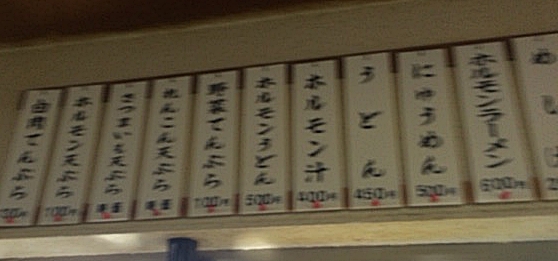 めし
ホルモンラーメン
600円
にゅうめん
500円
うどん
450円
ホルモン汁
400円
ホルモンうどん
500円
野菜てんぷら
100円
れんこん天ぷら
さつまいも天ぷら
ホルモン天ぷら
100円
白肉てんぷら